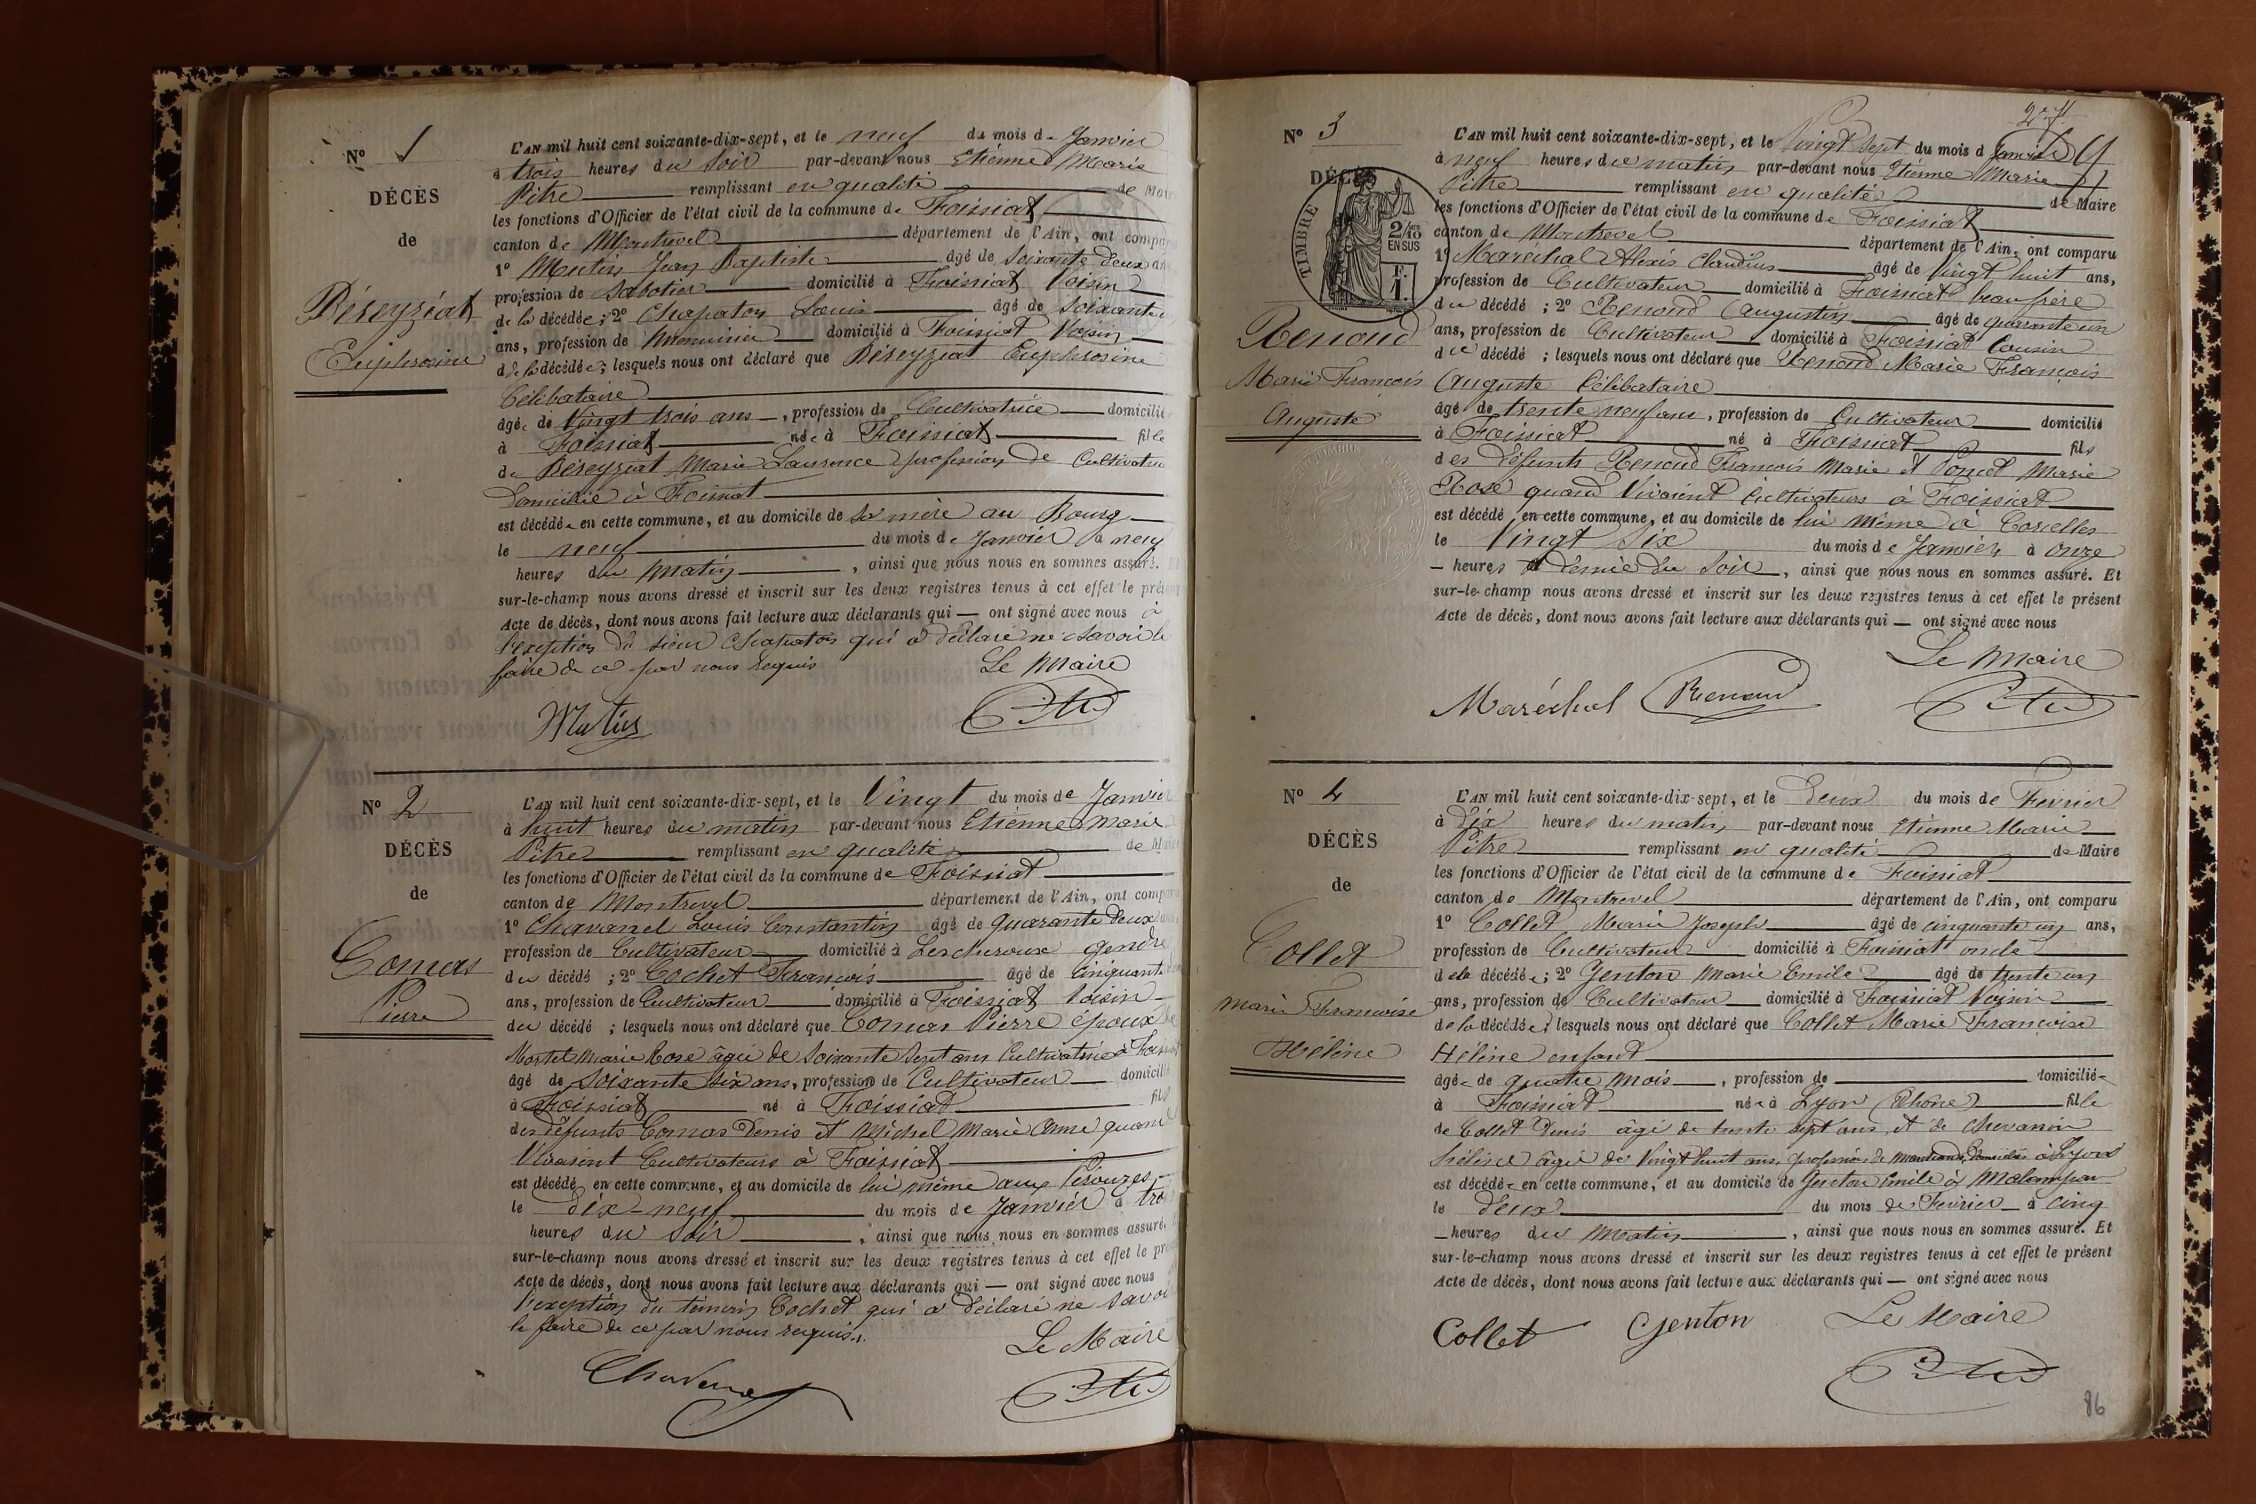 N° 1
DÉCÈS
de
Béreyziat
Euphrosine
L'AN mil huit cent soixante-dix-sept, et le neuf du mois de Janvier
à trois heures du soir par-devant nous Etienne Marie
Pitre remplissant en qualité de Maire
les fonctions d'Officier de l'état civil de la commune de Foissiat
canton de Montrevel département de l'Ain, ont comparu
1° Mutin Jean Baptiste âgé de soixante deux ans
profession de sabotier domicilié à Foissiat Voisin
de la décédée ; 2° Chapaton Louis âgé de soixante
ans, profession de Menuisier domicilié à Foissiat Voisin
d de la décédée ; lesquels nous ont déclaré que Béreyziat Euphrosine
Célibataire
âgée de Vingt trois ans, profession de Cultivatrice domicilié
à Foissiat née à Foissiat fille
de Béreyziat Marie Laurence profession de Cultivatrice
domiciliée à Foissiat
est décédée en cette commune, et au domicile de sa mère au Bourg
le neuf du mois de Janvier à neuf
heures du Matin, ainsi que nous nous en sommes assuré.
sur-le-champ nous avons dressé et inscrit sur les deux registres tenus à cet effet le présent
Acte de décès, dont nous avons fait lecture aux déclarants qui — ont signé avec nous à
l'exception du sieur Chapaton qui a déclaré ne savoir le
faire de ce par nous requis
Le Maire
Mutin
Pitre
N° 2
DÉCÈS
de
Comas
Pierre
L'AN mil huit cent soixante-dix-sept, et le Vingt du mois de Janvier
à huit heures du matin par-devant nous Etienne Marie
Pitre remplissant en qualité de Maire
les fonctions d'Officier de l'état civil de la commune de Foissiat
canton de Montrevel département de l'Ain, ont comparu
1° Chavanel Louis Constantin âgé de quarante deux
profession de Cultivateur domicilié à Lescheroux gendre
du décédé ; 2° Cochet François âgé de Cinquante
ans, profession de Cultivateur domicilié à Foissiat Voisin
du décédé ; lesquels nous ont déclaré que Comas Pierre époux
Mortel Marie Rose âgée de Soixante Sept ans Cultivatrice à Foissiat
âgé de soixante six ans, profession de Cultivateur domicilié
à Foissiat né à Foissiat fils
des défunts Comas Denis et Michel Marie Anne quand
Vivaient Cultivateurs à Foissiat
est décédé en cette commune, et au domicile de lui même aux Pérouzes
le dix-neuf du mois de Janvier à trois
heures du soir, ainsi que nous nous en sommes assuré.
sur-le-champ nous avons dressé et inscrit sur les deux registres tenus à cet effet le présent
Acte de décès, dont nous avons fait lecture aux déclarants qui — ont signé avec nous
l'exception du témoin Cochet qui a déclaré ne savoir
le faire de ce par nous requis.
Le Maire
Chavanel
Pitre
N° 3
TIMBRE
2/10
EN SUS
F. 1.
DÉCÈS
Renoud
Marie François
Auguste
L'AN mil huit cent soixante-dix-sept, et le Vingt sept du mois d Janvier
à neuf heures du matin par-devant nous Etienne Marie
Pitre remplissant en qualité de Maire
les fonctions d'Officier de l'état civil de la commune de Foissiat
canton de Montrevel département de l'Ain, ont comparu
1° Maréchal Alexis Claudius âgé de Vingt huit ans,
profession de Cultivateur domicilié à Foissiat beau frère
du décédé ; 2° Renoud Augustin âgé de quarante un
ans, profession de Cultivateur domicilié à Foissiat Cousin
du décédé ; lesquels nous ont déclaré que Renoud Marie François
Auguste Célibataire
âgé de trente neuf ans, profession de Cultivateur domicilié
à Foissiat né à Foissiat fils
des défunts Renoud François Marie et Poncet Marie
Rose quand Vivaient Cultivateurs à Foissiat
est décédé en cette commune, et au domicile de lui même à Corcelles
le Vingt Six du mois de Janvier à onze
— heures et demie du soir, ainsi que nous nous en sommes assuré. Et
sur-le-champ nous avons dressé et inscrit sur les deux registres tenus à cet effet le présent
Acte de décès, dont nous avons fait lecture aux déclarants qui — ont signé avec nous
Le Maire
Maréchal Renoud
Pitre
N° 4
DÉCÈS
de
Collet
Marie Françoise
Hélène
L'AN mil huit cent soixante-dix-sept, et le Deux du mois de Février
à Dix heures du matin par-devant nous Etienne Marie
Pitre remplissant en qualité de Maire
les fonctions d'Officier de l'état civil de la commune de Foissiat
canton de Montrevel département de l'Ain, ont comparu
1° Collet Marie Joseph âgé de cinquante un ans,
profession de Cultivateur domicilié à Foissiat oncle
de la décédée ; 2° Genton Marie Emile âgé de trente un
ans, profession de Cultivateur domicilié à Foissiat Voisin
de la décédée ; lesquels nous ont déclaré que Collet Marie Françoise
Hélène enfant
âgée de quatre Mois, profession de domiciliée
à Foissiat née à Lyon (Rhône) fille
de Collet Denis âgé de trente sept ans, et de Chevanin
âgée de Vingt huit ans, profession de Marchands, domiciliés à Lyon
est décédée en cette commune, et au domicile de Genton Emile à Malempan
le deux du mois de Février à Cinq
— heures du Matin, ainsi que nous nous en sommes assuré. Et
sur-le-champ nous avons dressé et inscrit sur les deux registres tenus à cet effet le présent
Acte de décès, dont nous avons fait lecture aux déclarants qui — ont signé avec nous
Collet Genton Le Maire
Pitre
86